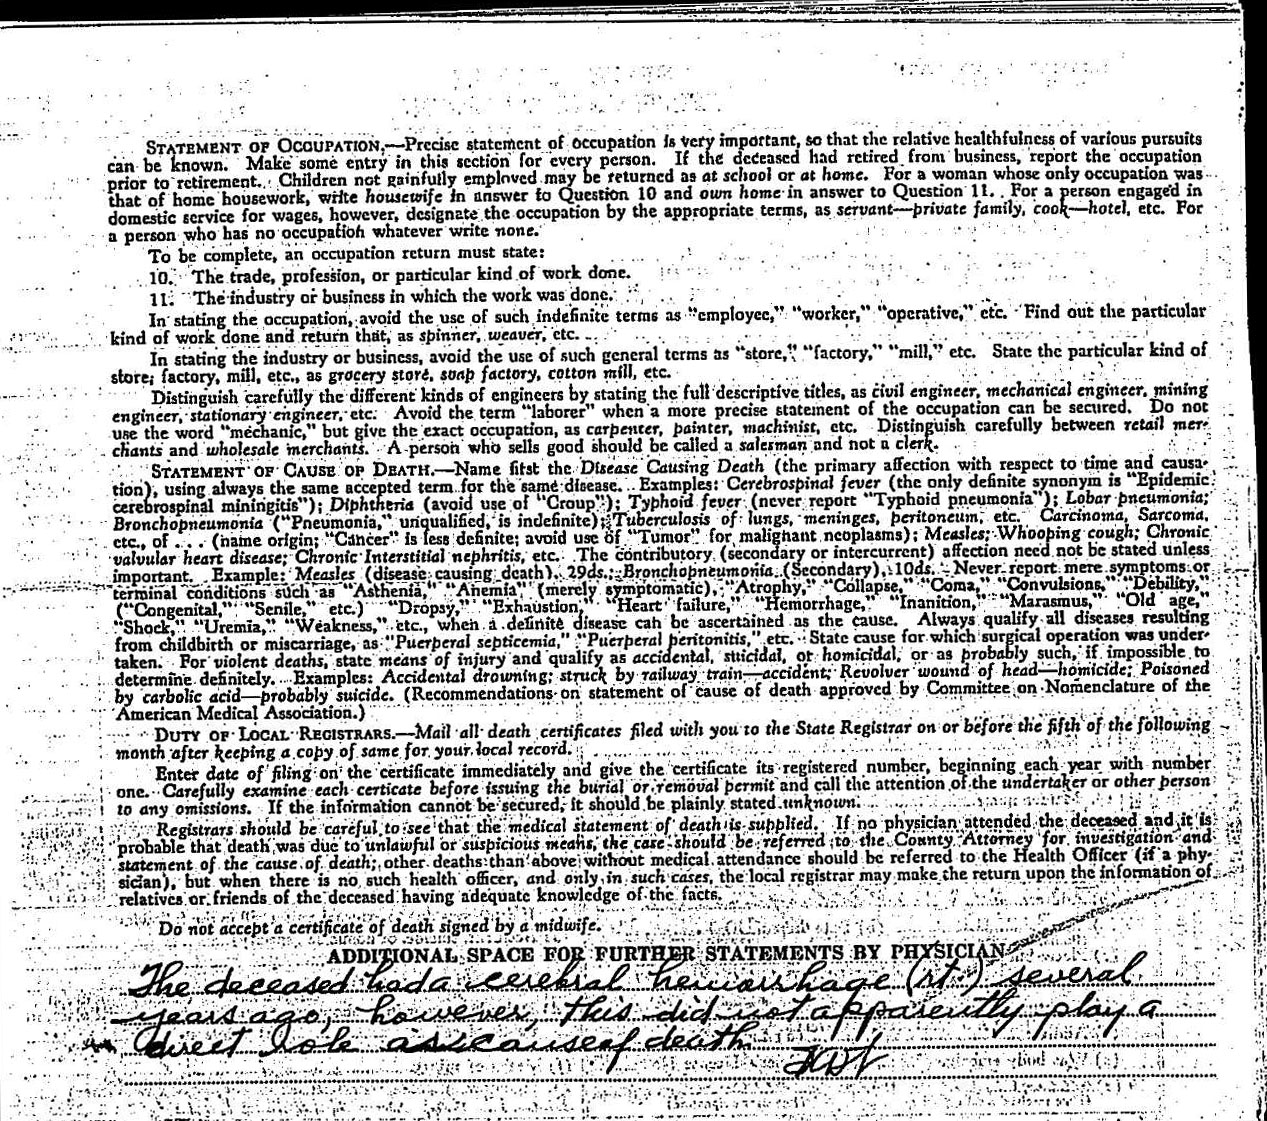 STATEMENT OF OCCUPATION.—Precise statement of occupation is very important, so that the relative healthfulness of various pursuits
can be known. Make some entry in this section for every person. If the deceased had retired from business, report the occupation
prior to retirement. Children not gainfully employed may be returned as at school or at home. For a woman whose only occupation was
that of home housework, write housewife in answer to Question 10 and own home in answer to Question 11. For a person engaged in
domestic service for wages, however, designate the occupation by the appropriate terms, as servant—private family, cook—hotel, etc. For
a person who has no occupation whatever write none.
To be complete, an occupation return must state:
10. The trade, profession, or particular kind of work done.
11. The industry or business in which the work was done.
In stating the occupation, avoid the use of such indefinite terms as "employee," "worker," "operative," etc. Find out the particular
kind of work done and return that, as spinner, weaver, etc.
In stating the industry or business, avoid the use of such general terms as "store," "factory," "mill," etc. State the particular kind of
store, factory, mill, etc., as grocery store, soap factory, cotton mill, etc.
Distinguish carefully the different kinds of engineers by stating the full descriptive titles, as civil engineer, mechanical engineer, mining
engineer, stationary engineer, etc. Avoid the term "laborer" when a more precise statement of the occupation can be secured. Do not
use the word "mechanic," but give the exact occupation, as carpenter, painter, machinist, etc. Distinguish carefully between retail mer-
chants and wholesale merchants. A person who sells good should be called a salesman and not a clerk.
STATEMENT OF CAUSE OF DEATH.—Name first the Disease Causing Death (the primary affection with respect to time and causa-
tion), using always the same accepted term for the same disease. Examples: Cerebrospinal fever (the only definite synonym is "Epidemic
cerebrospinal miningitis"); Diphtheria (avoid use of "Croup"); Typhoid fever (never report "Typhoid pneumonia"); Lobar pneumonia;
Bronchopneumonia ("Pneumonia," unqualified, is indefinite); Tuberculosis of lungs, meninges, peritoneum, etc. Carcinoma, Sarcoma,
etc., of . . . (name origin; "Cancer" is less definite; avoid use of "Tumor" for malignant neoplasms); Measles; Whooping cough; Chronic
valvular heart disease; Chronic Interstitial nephritis, etc. The contributory (secondary or intercurrent) affection need not be stated unless
important. Example: Measles (disease causing death), 29ds.; Bronchopneumonia (Secondary), 10ds. Never report mere symptoms or
terminal conditions such as "Asthenia," "Anemia" (merely symptomatic), "Atrophy," "Collapse," "Coma," "Convulsions," "Debility,"
("Congenital," "Senile," etc.) "Dropsy," "Exhaustion," "Heart failure," "Hemorrhage," "Inanition," "Marasmus," "Old age,"
"Shock," "Uremia," "Weakness," etc., when a definite disease can be ascertained as the cause. Always qualify all diseases resulting
from childbirth or miscarriage, as "Puerperal septicemia," "Puerperal peritonitis," etc. State cause for which surgical operation was under-
taken. For violent deaths, state means of injury and qualify as accidental, suicidal, or homicidal, or as probably such, if impossible to
determine definitely. Examples: Accidental drowning; struck by railway train—accident; Revolver wound of head—homicide; Poisoned
by carbolic acid—probably suicide. (Recommendations on statement of cause of death approved by Committee on Nomenclature of the
American Medical Association.)
DUTY OF LOCAL REGISTRARS.—Mail all death certificates filed with you to the State Registrar on or before the fifth of the following
month after keeping a copy of same for your local record.
Enter date of filing on the certificate immediately and give the certificate its registered number, beginning each year with number
one. Carefully examine each certicate before issuing the burial or removal permit and call the attention of the undertaker or other person
to any omissions. If the information cannot be secured, it should be plainly stated unknown.
Registrars should be careful to see that the medical statement of death is supplied. If no physician attended the deceased and it is
probable that death was due to unlawful or suspicious means, the case should be referred to the County Attorney for investigation and
statement of the cause of death; other deaths than above without medical attendance should be referred to the Health Officer (if a phy-
sician), but when there is no such health officer, and only in such cases, the local registrar may make the return upon the information of
relatives or friends of the deceased having adequate knowledge of the facts.
Do not accept a certificate of death signed by a midwife.
ADDITIONAL SPACE FOR FURTHER STATEMENTS BY PHYSICIAN
The deceased had a cerebral hemorrhage (rt.) several
years ago, however, this did not apparently play a
direct role as a cause of death